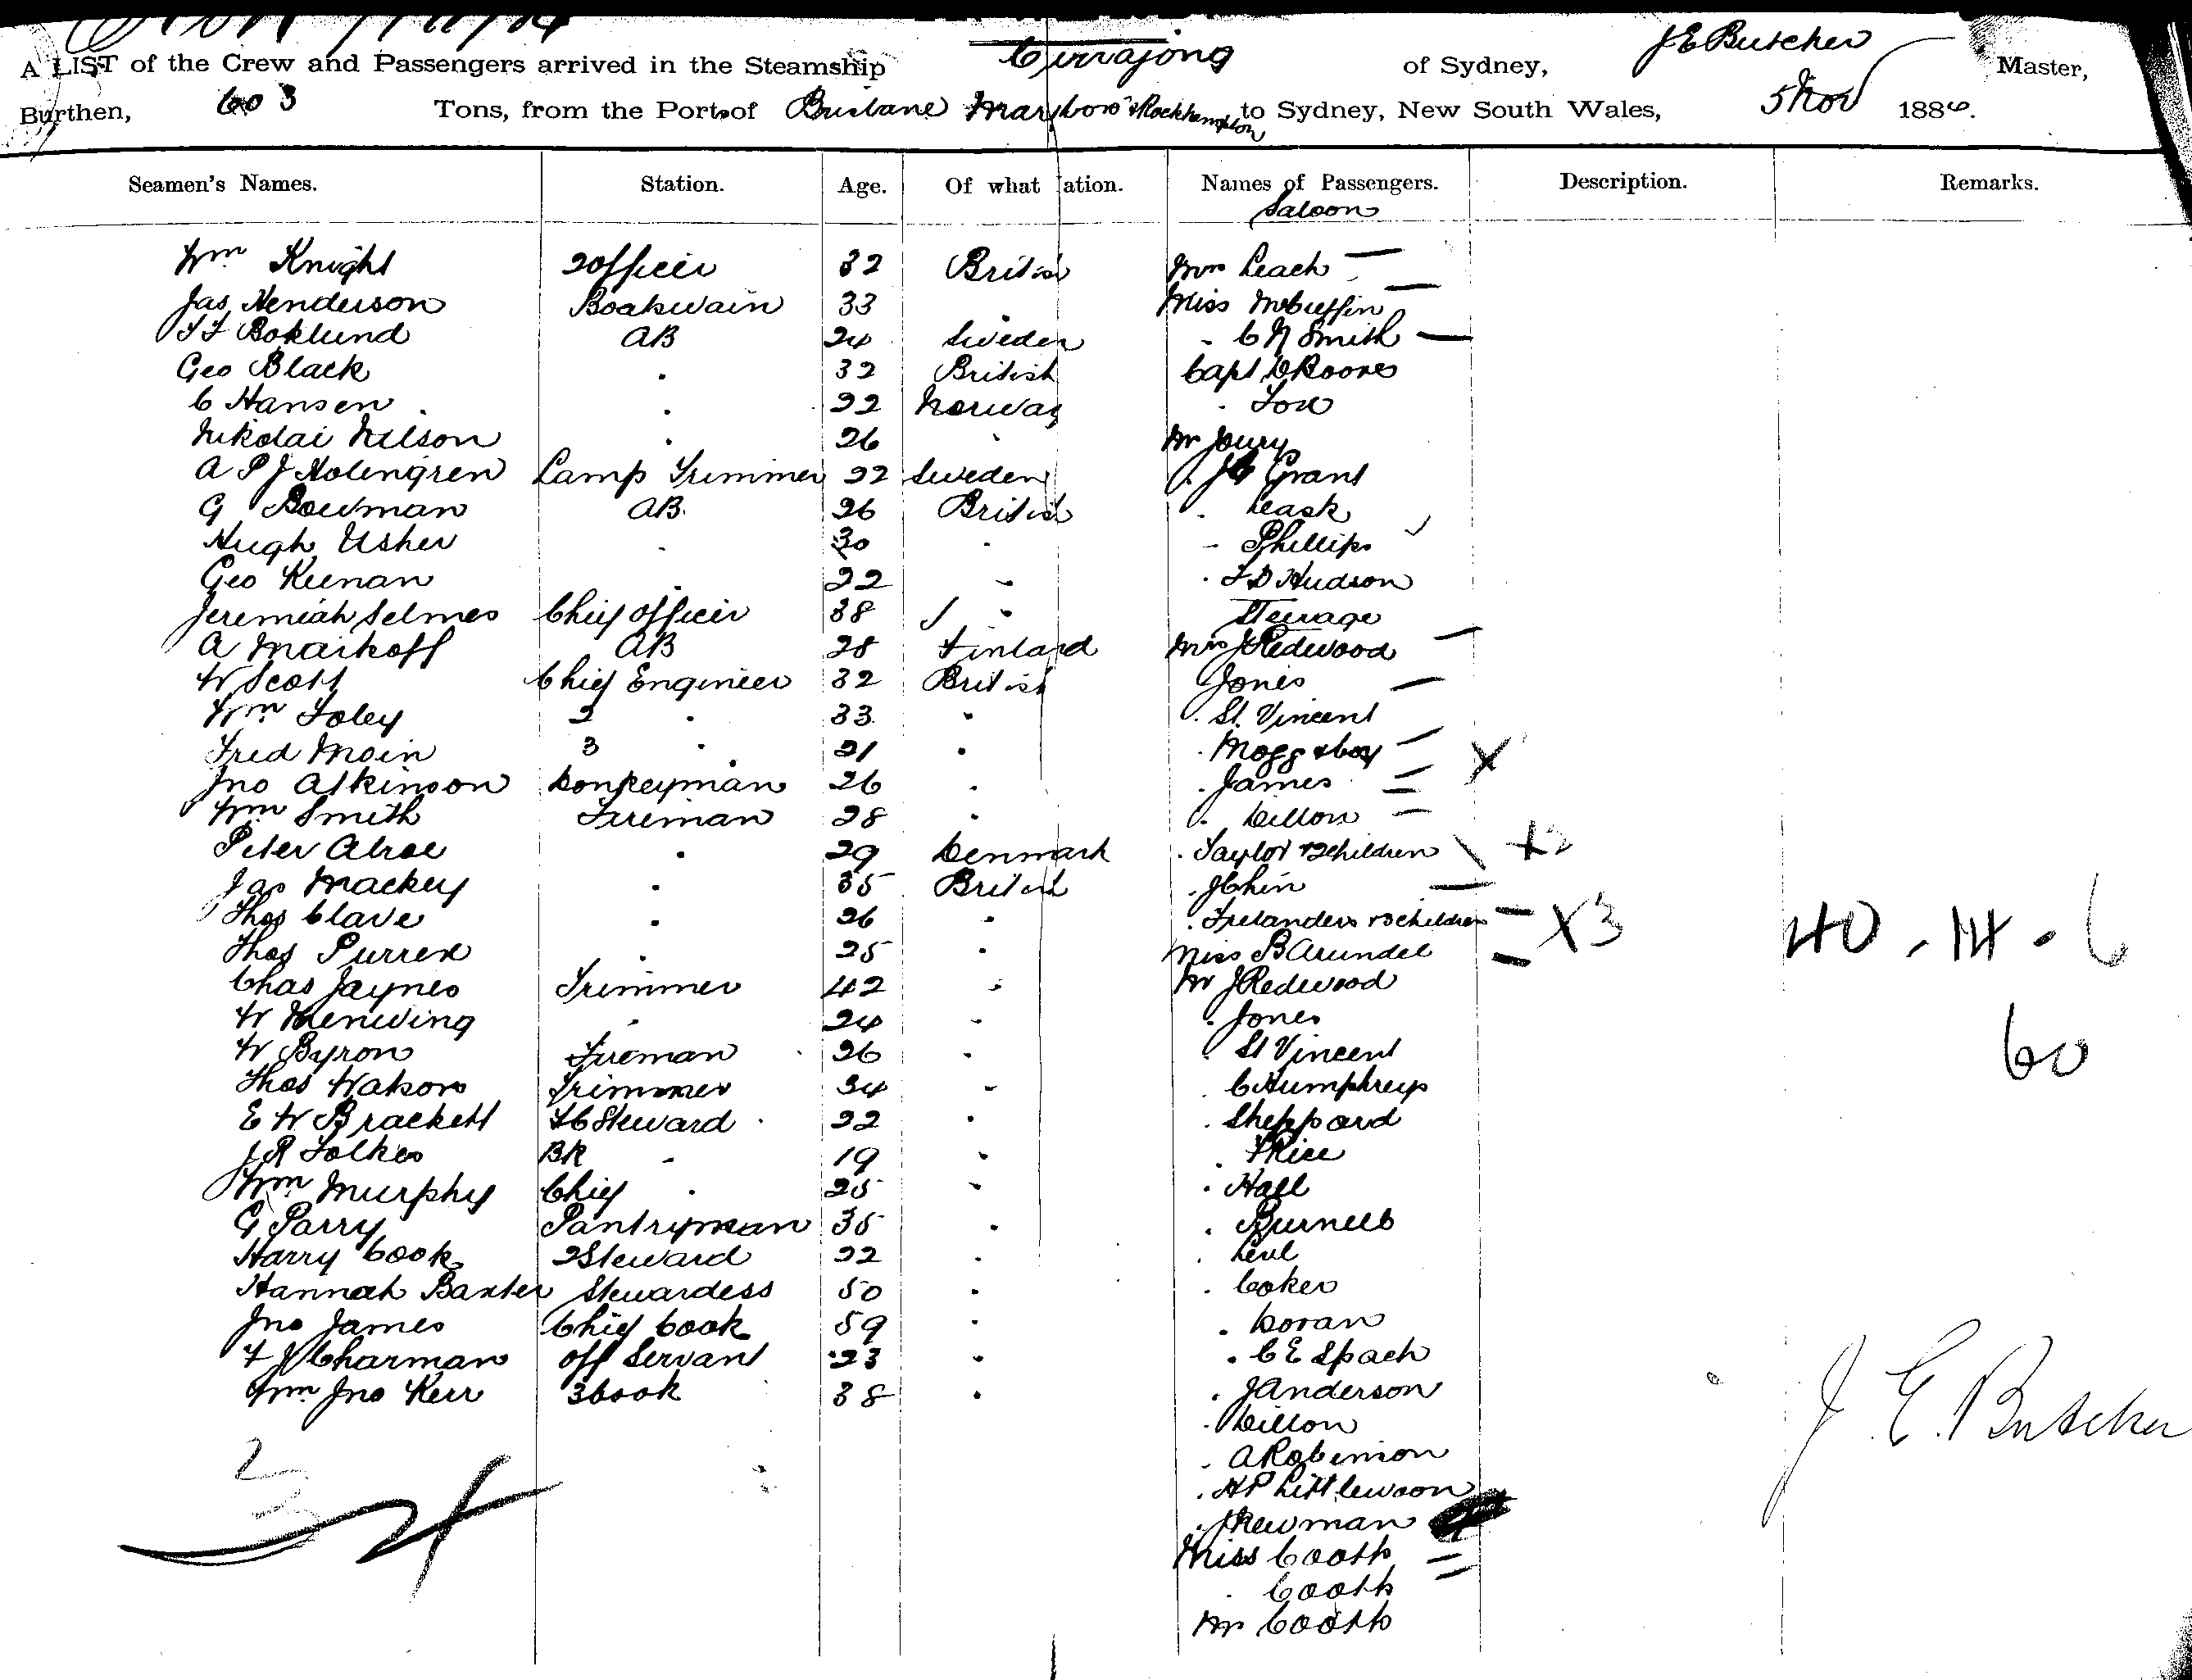 A LIST of the Crew and Passengers arrived in the Steamship Currajong of Sydney, J E Butcher Master,
Burthen, 603 Tons, from the Port of Brisbane Maryboro & Rockhampton to Sydney, New South Wales, 5 Nov 1886.
Seamen's Names. Station. Age. Of what ation. Names of Passengers. Description. Remarks.
Saloon
Wm Knight 2 Officer 32 British Mrs Leach —
Jas Henderson Boatswain 33 Miss McGuffin —
Boklund AB 24 Sweden - C N Smith —
Geo Black . 32 British Capt
C Hansen . 22 Norway . Fox
Nikolai Nilson . 26 Mr
A P J Holengren Lamp Trimmer 22 Sweden . Grant
G Bowman AB. 26 British . Leask
Hugh Usher . 30 - Phillips ✓
Geo Keenan . 22 . F D Hudson
Jeremiah Selmes Chief Officer 38 Steerage
A Maikoff AB 28 Finland Mrs J Redwood —
W Scott Chief Engineer 32 British Jones —
Wm Foley 2 . 33 . St. Vincent
Fred Moin 3 . 21 . Mogg & boy — X
Jno Atkinson Donkeyman 26 . James =
Wm Smith Fireman 28 . Dillon =
Peter Alroe . 29 Denmark . Taylor & 2 children \ X2
Jas Mackey . 35 British . J Chin —
Thos Clave . 26 . Irelanders & 3 children = X3 40 . 14 . 6
Thos Purrex . 25 Miss B Arundel
Chas Jaynes Trimmer 42 Mr J Redwood
W . 24 . Jones 60
W Byron Fireman 26 . St Vincent
Thos Watson Trimmer 34 . C Humphreys
E W Brackett F C Steward 22 . Sheppard
J R Folkes BK - 19 . Price
Wm Murphy Chief . 25 . Hall
G Parry Pantryman 35 . Burnell
Harry Cook 2 Steward 22 .
Hannah Baxter Stewardess 50 . Coker
Jno James Chief Cook 59 . Doran
F J Charman Off Servant 23 . C E Spach
Wm Jno Kerr 3 Cook 38 . J Anderson
. Dillon
J E Butcher
. A Robinson
. H P Littlewoon
. J Newman
Miss Cooth =
. Cooth
Mr Cooth
34